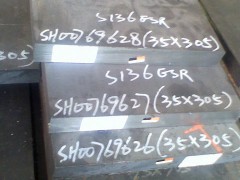 S136ESR
SH00769628(35X305)
305)
S136ESR
SH00769627(35X305)
SH00769626(35X305)